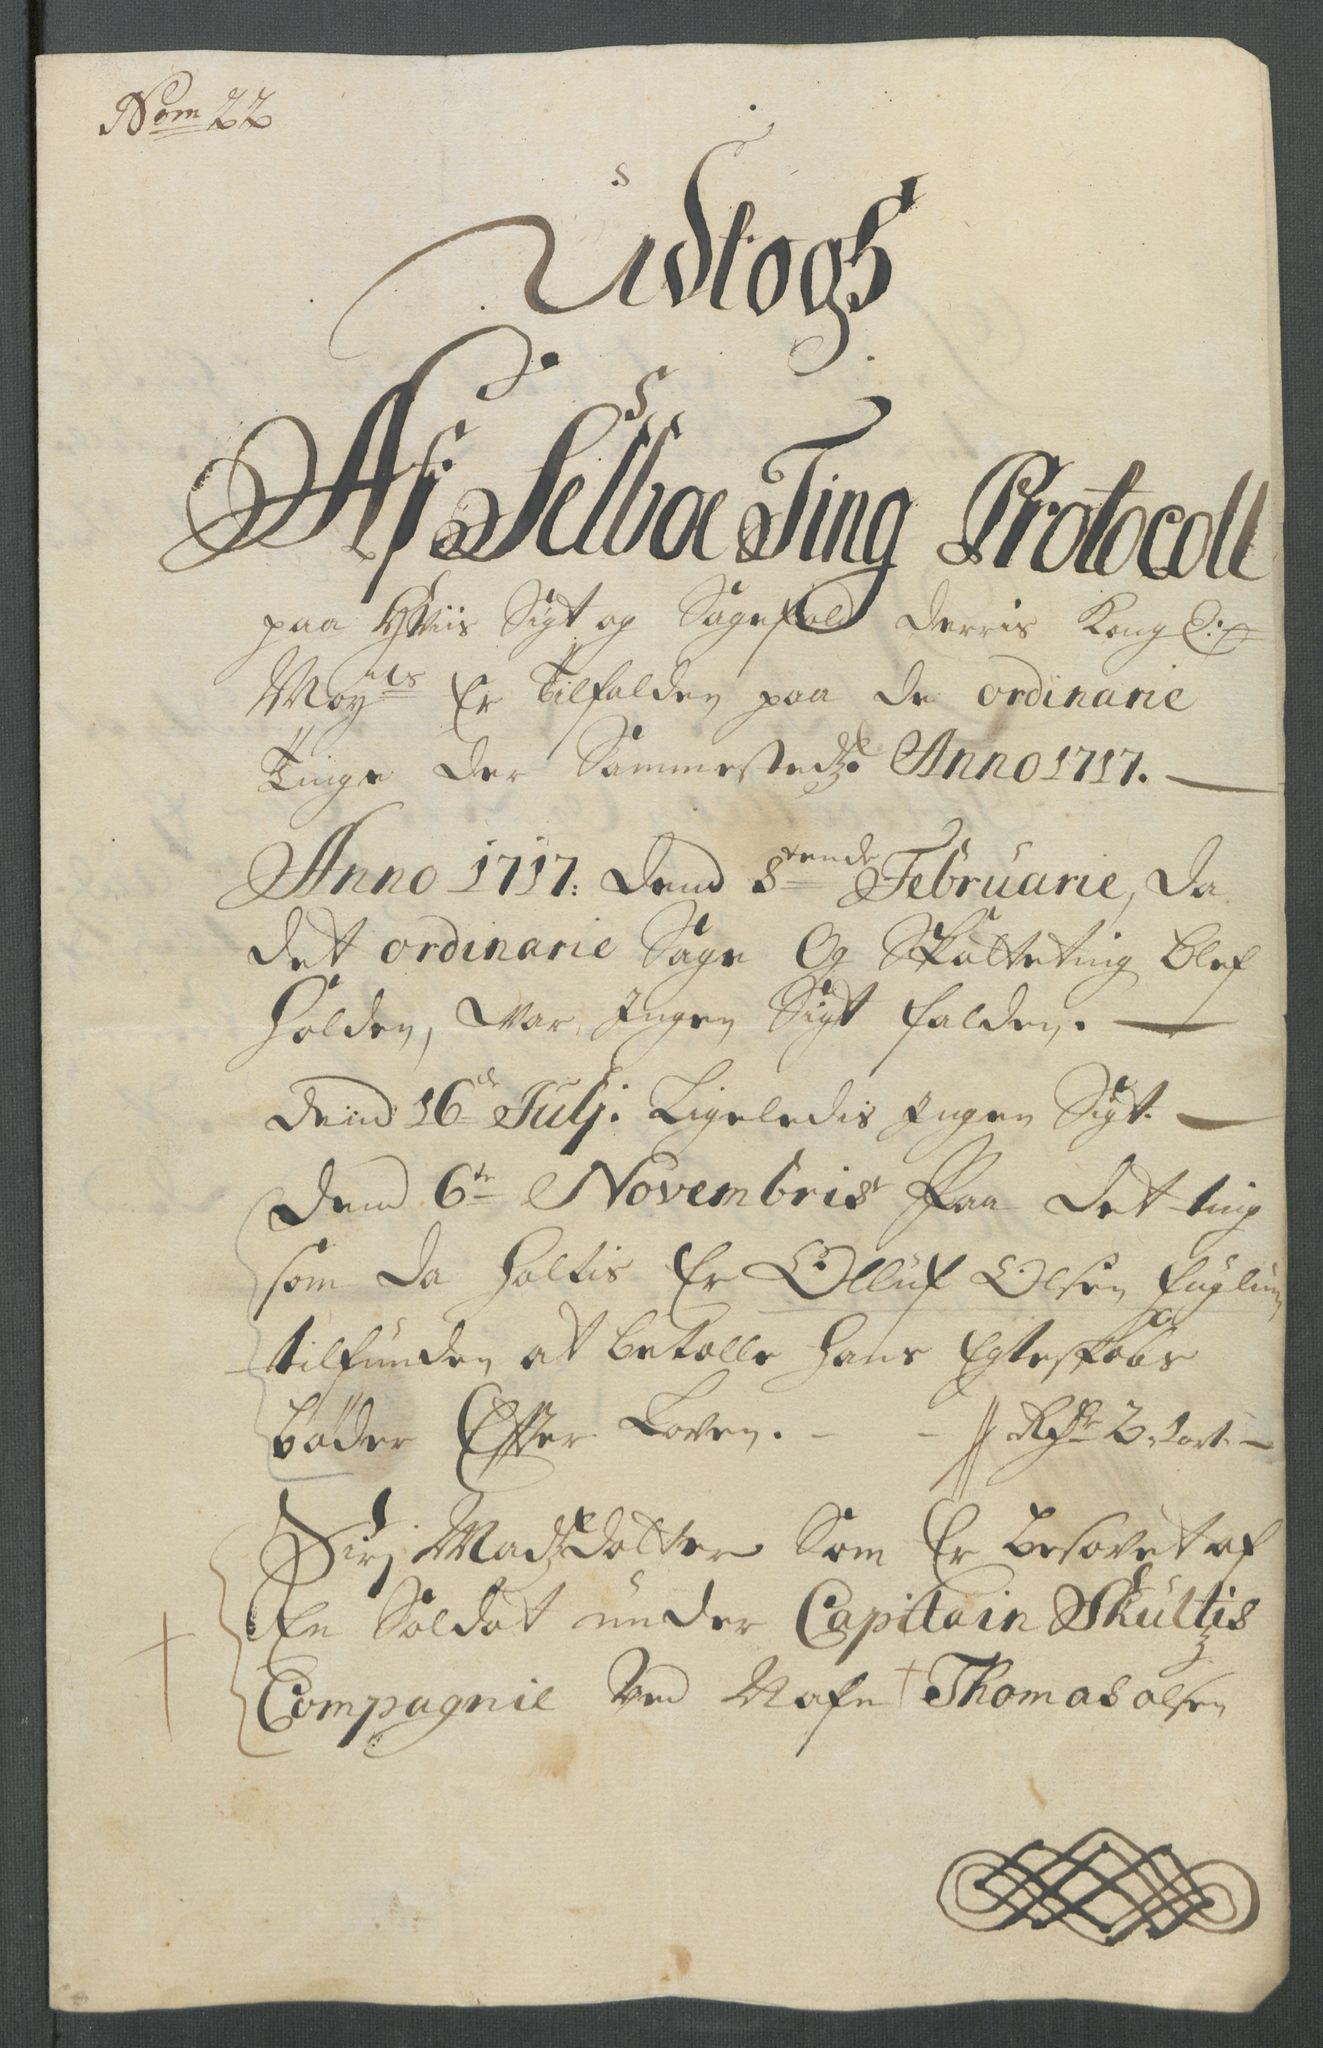 Nom 22
Udtogs
Af Selboe Ting Protocoll
paa Hviis Sigt og Sagefald Derris Kongl:
Mayts Er Tilfalden paa de ordinarie
Tinge der Sammestedz Anno 1717.
Anno 1717: Dend 8tende Februarie, Da
Det ordinarie Sage Og Skatteting blef
Holden, War Ingen Sigt falden.
Dend 16de Julj. Ligeledis Ingen Sigt.
Dend 6te Novembris Paa Det ting
som da Holtis Er Olluf Olsen Fuglum
tilfunden at betalle Hans Egteskabs
böder Effter Loven. - - Rdr 2 1 ort
Sirj Madzdatter Som Er besovet af
En Soldat under Capitain Skultis
Compagnie Ved Nafn Thomas olsen